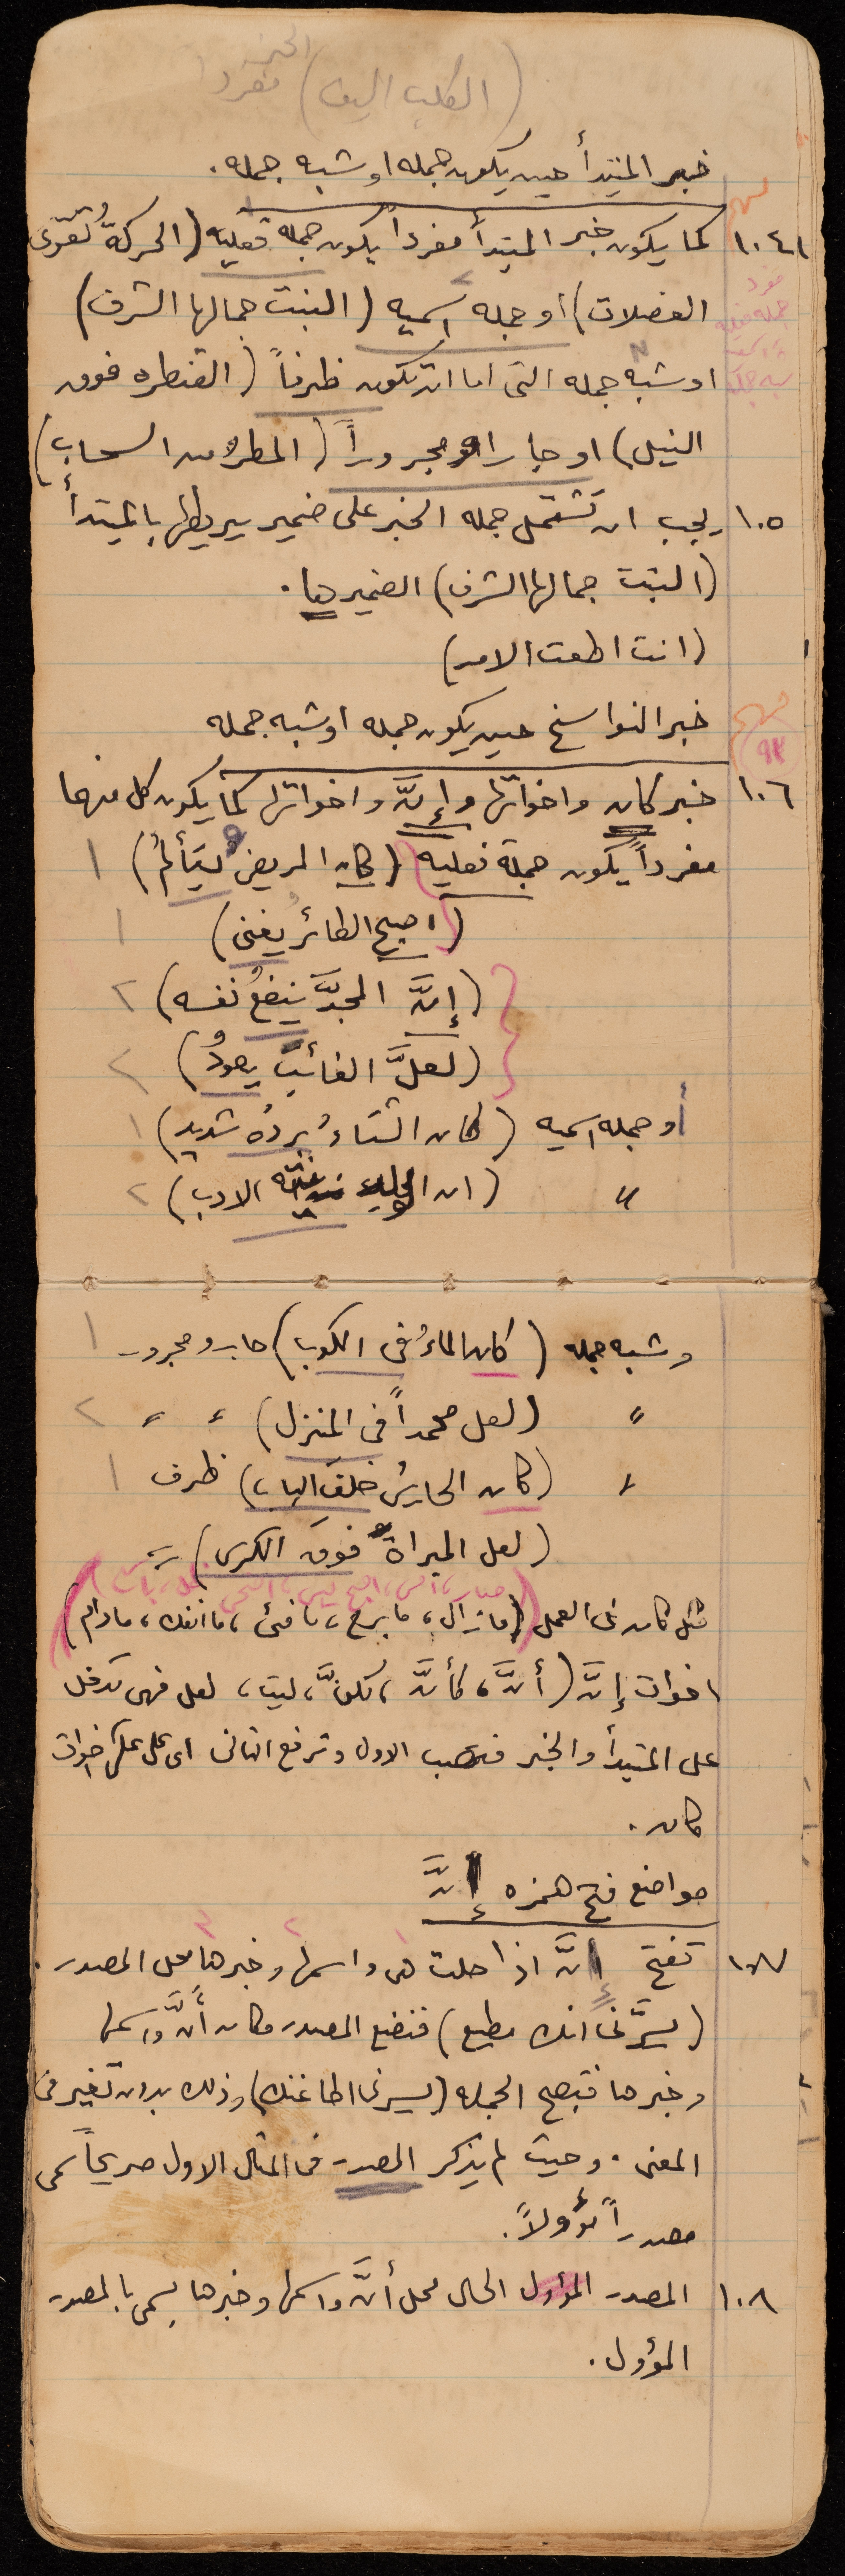 الخبر
(الكلب اليف) مفرد
خبر المبتدأ حين يكون جمله او شبه جمله .
١٠٤ كما يكون خبر المبتدأ مفرداً يكون جمله فعليه (الحركةُ تُقوّى
العضلات) أو جمله اسميه (البنت جمالها الشرف)
مفرد
جمله فعليه
اسميه
شبه جمله
او شبه جمله التى اما ان تكون ظرفاً (القنطره فوق
النيل) او جارا ومجروراً (المطرُ من السحاب)
١٠٥ يجب ان تشتمل جمله الخبر على ضمير يربطها بالمبتدأ
(البنت جمالها الشرف) الضمير ها .
(انت اطعت الامر)
خبر النواسخ حين يكون جمله او شبه جمله
٩٣
١٠٦ خبر كان واخواتها وإنَّ واخواتها كما يكون كل منهما
مفرداً يكون جملة فعليه (كان المريضُ يتألمُ) ١
(اصبح الطائرُ يغنى) ١
(إنَّ المجدَّ ينفعُ نفسه) ٢
(لعلَّ الغائبَ يعودُ) ٢
أو جمله اسميه (كان الشتاءُ بردُه شديد) ١
〃 (ان الادب) ٢
وشبه جمله (كان الماءُ فى الكوب) جار ومجرور ١
〃 (لعل محمداً فى المنزل) 〃 〃 ٢
〃 (كان الحارسُ خلف الباب) ظرف ١
(لعل المبراة فوق الكرسى) 〃
صار، امسى، اصبح، ليس، اضحى، ظل، بات
مثل كان فى العمل (مازال، ما برح، ما فتئ، ما انفك، مادام)
اخوات إنَّ (أنَّ، كأنَّ، لكنَّ، ليت، لعل فهى تدخل
على المبتدأ والخبر فتنصب الاول وترفع الثانى اى على عكس اخوات
كان .
مواضع فتح همزه إنَّ
١ ٢ ٣
١٠٧ تفتح إنَّ اذا حلت هى واسمها وخبرها محل المصدر .
(يسرّنى انك مطيع) فنضع المصدر مكان أنَّ واسمها
وخبرها فتصبح الجمله (يسرنى اطاعتك) وذلك بدون تغير فى
المعنى . وحيث لم يذكر المصدر فى المثال الاول صريحاً سمى
مصدراً مؤولاً .
١٠٨ المصدر المؤول الحال محل أنَّ واسمها وخبرها يسمى بالمصدر
المؤول .